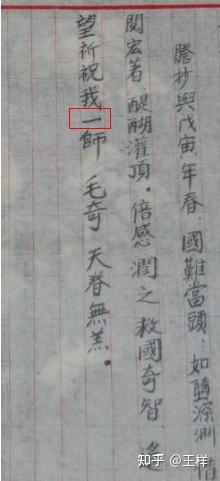 謄抄與戊寅年春．國難當頭．如臨深淵 借
閱宏著 醍醐灌頂．倍感潤之救國奇智 遙
望祈祝我一師 毛奇 天眷無恙．
知乎 @王样